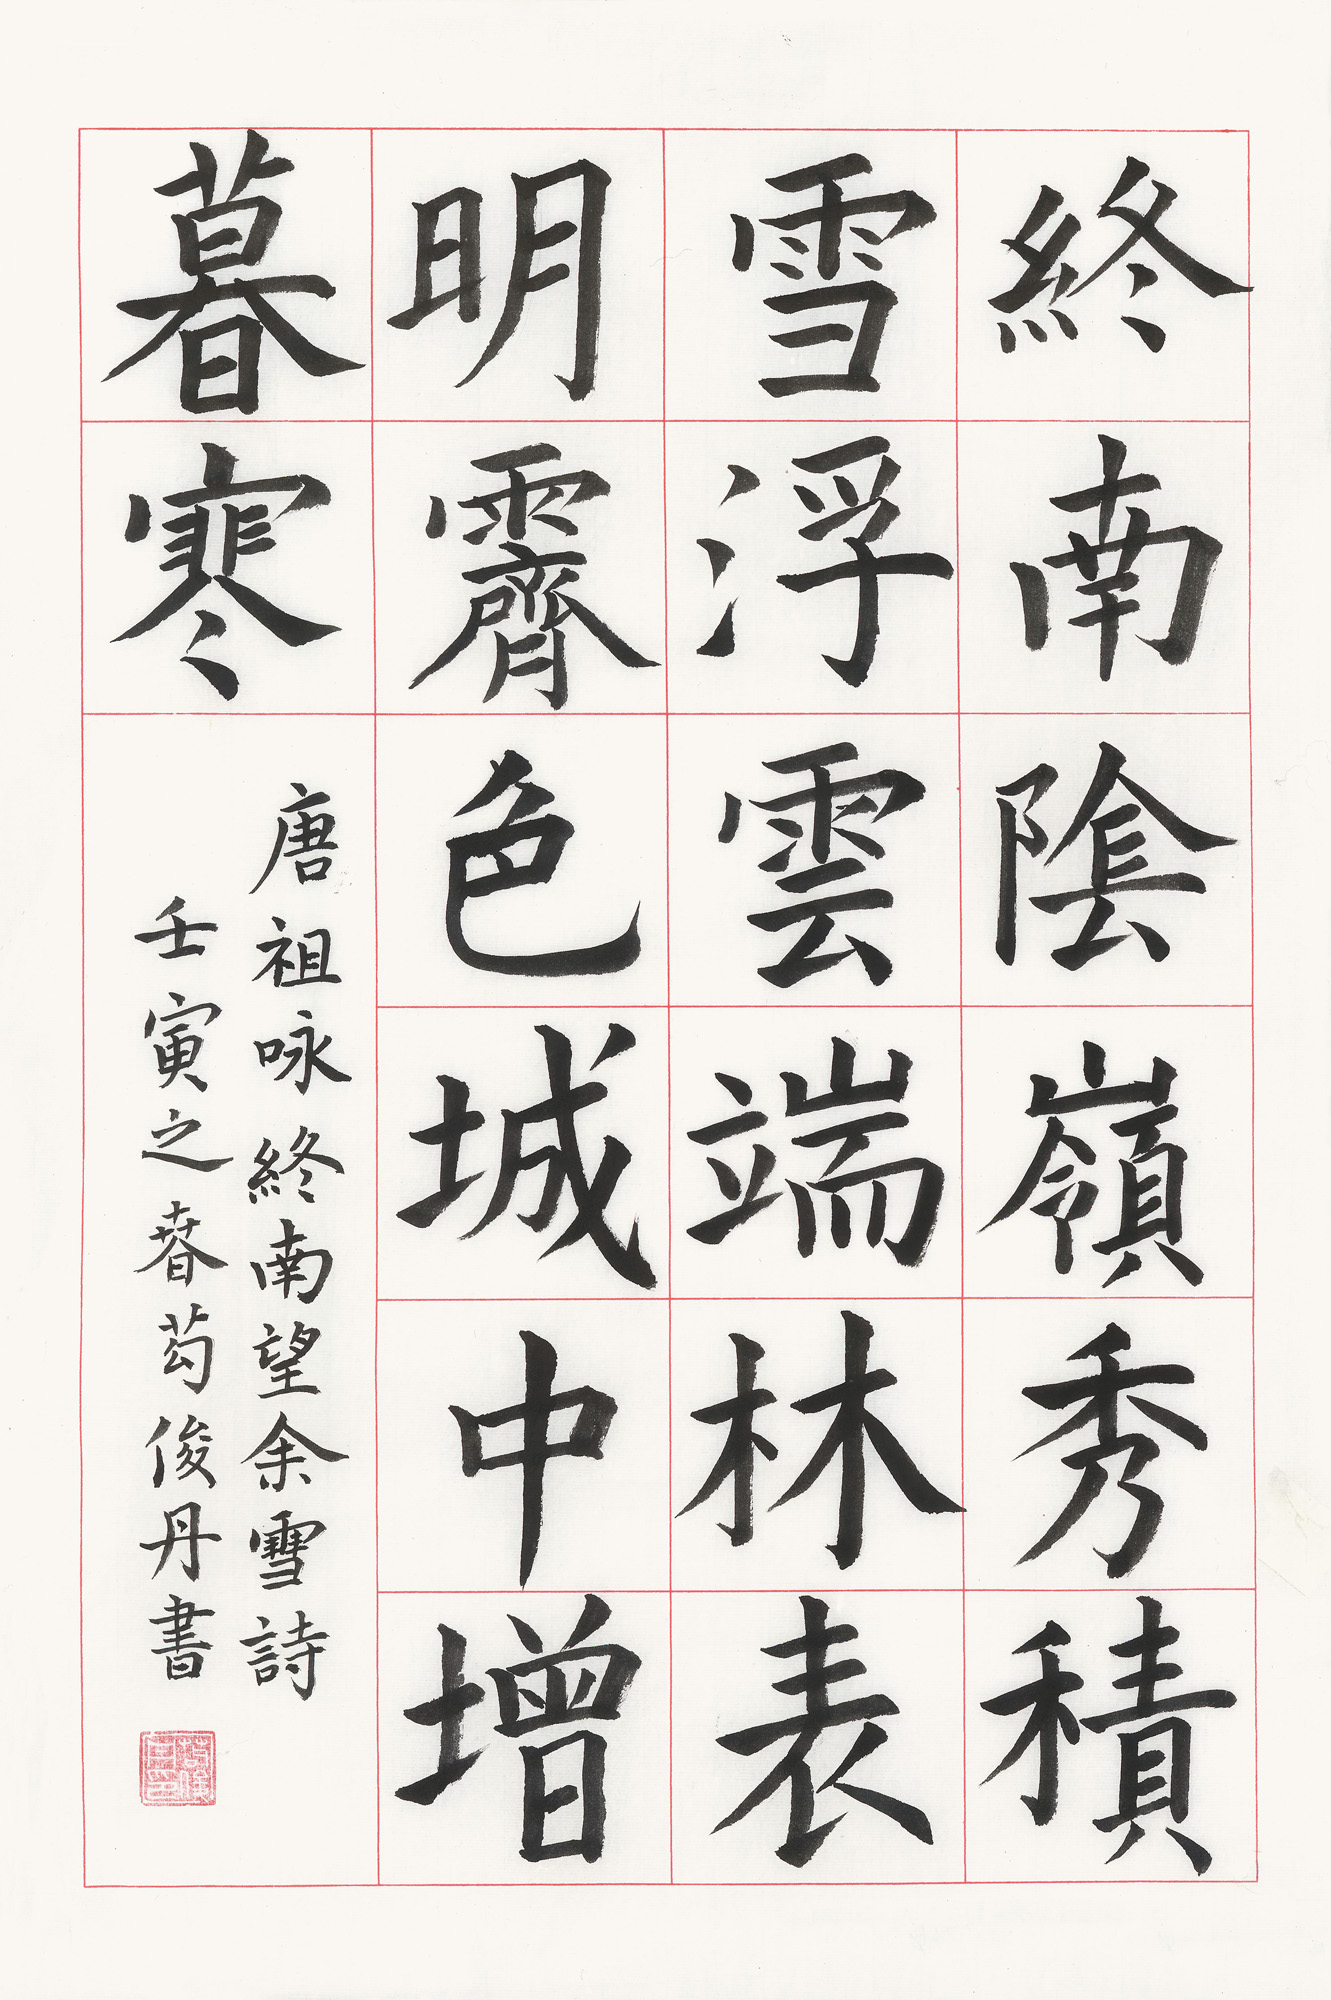 終南陰嶺秀積
雪浮雲端林表
明霽色城中增
暮寒
唐祖咏終南望余雪詩
壬寅之春苟俊丹書